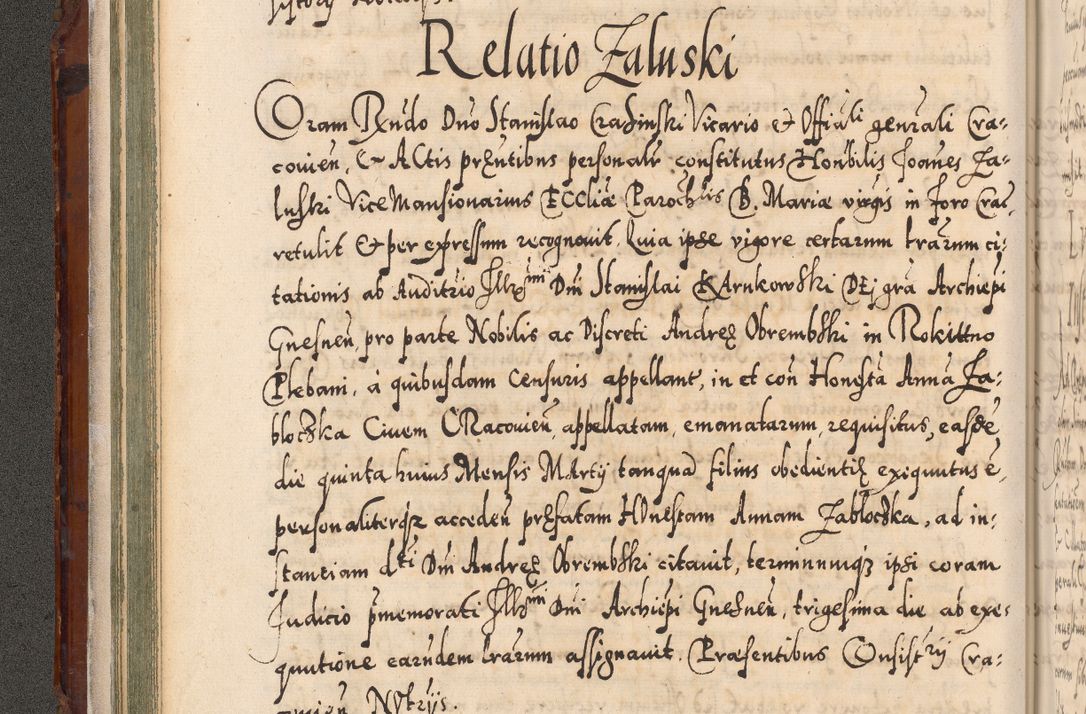 Relatio Zaluski
Coram Rndo Dno Stanislao Crasinski Vicario et Offiali genrali Cra=
couien, et Actis prentibus personalr constitutus Honbilis Joanes Za=
luski ViceMansionarius Eccliæ Parochlis B. Mariæ virgis in foro Crac
retulit et per expressum recognouit, Quia ipse vigore certarum lrarum ci=
tationis ab Auditrio Illrmi Dni Stanislai Karnkowski Dei gra Archiepi
Gnesnen, pro parte Nobilis ac Discreti Andreę Obrembski in Rokittno
Plebani, à quibusdam censuris appellant, in et con Honesta Anna Za=
bloczka Ciuem Cracouien, appellatam, emanatarum, requisitus, easde
die quinta huius Mensis Martij tanqua filius obedientię exequutus e,
personaliterqz acceden pręfatam Honestam Annam Zabloczka, ad in=
stantiam dti Dni Andreę Obrembski citauit, terminumqz ipsi coram
Judicio pmemorati Illrmi Dni Archiepi Gnesnen, trigesima die ab exe=
quutione earundem lrarum assignauit. Præsentibus Consistrij Cra=
couien Notrijs.